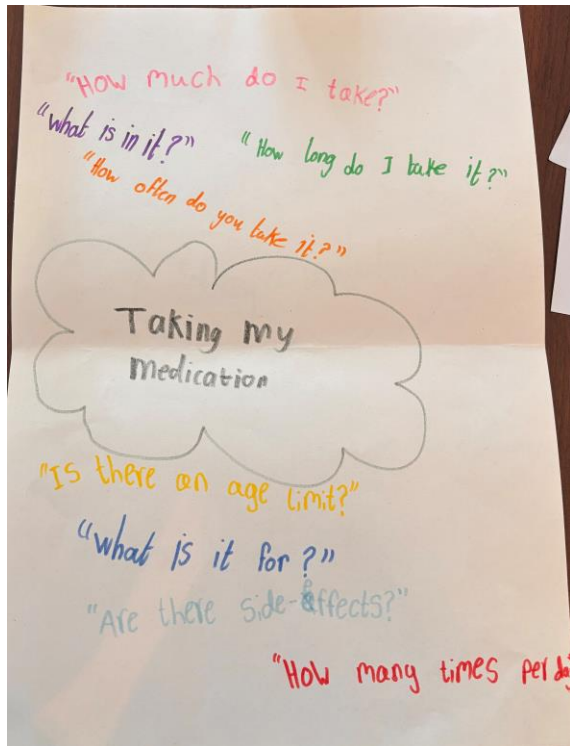 "How much do I take?"
"what is in it?"
"How long do I take it?"
"How often do you take it?"
Taking my
Medication
"Is there an age limit?"
"what is it for?"
"Are there side-effects?"
"How many times per